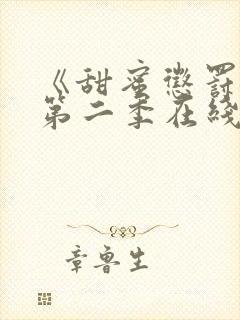 《甜蜜惩罚
第二季在线
章鲁生